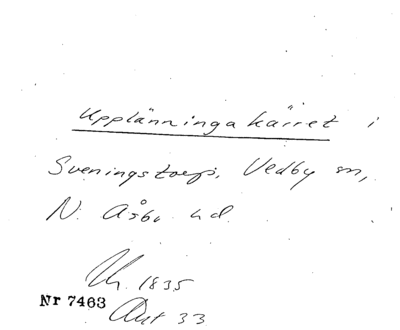 Upplänningakärret i
Sveningstorp, Vedby sn,
N. Åsbo hd.
1835
Nr 7463
Akt 33